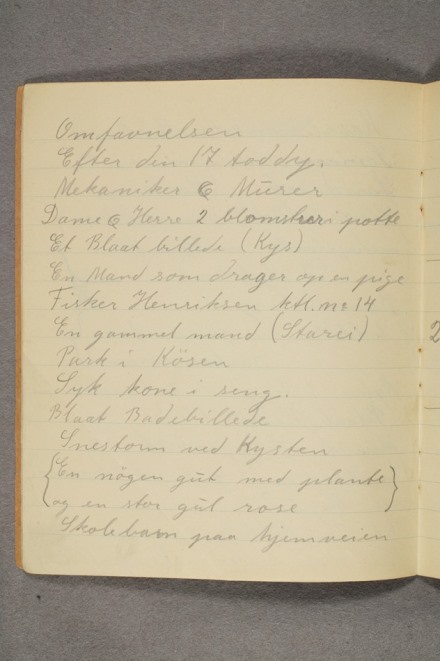 Omfavnelsen
Efter den 17 toddy.
Mekaniker & Mūrer
Dame & Herre 2 blomster i potte
Et Blaat billede (Kys)
En Mand som drager op en pige
Fisker Henriksen ktl. no 14
En gammel mand (Starei)
Park i Kösen
Syk kone i seng.
Blaat Badebillede
Snestorm ved Kysten
{En nögen gūt med plante
og en stor gūl rose}
Skolebarn paa hjemveien
2